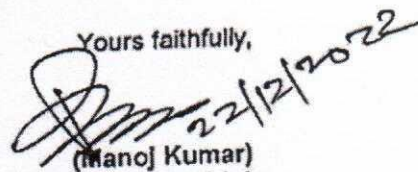 Yours faithfully,
22/12/2022
(Manoj Kumar)